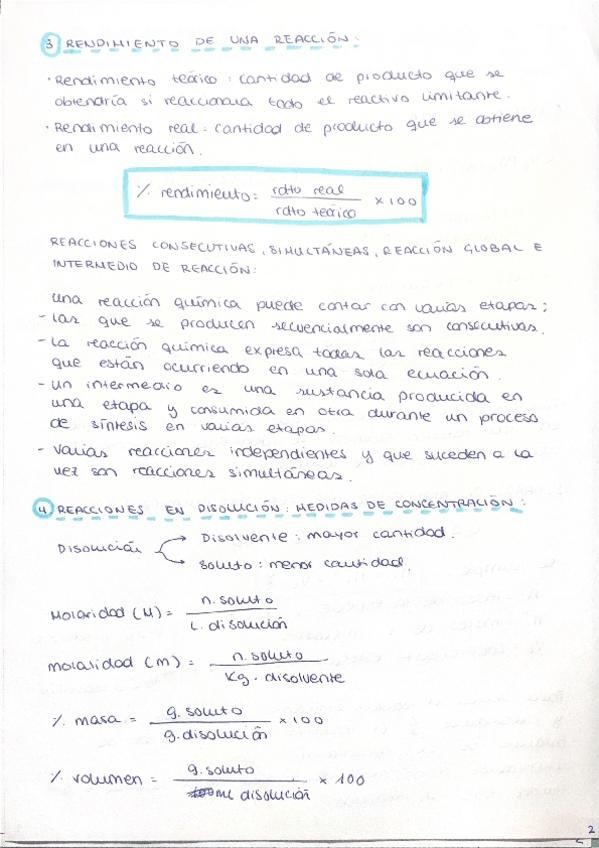 3 RENDIMIENTO DE UNA REACCIÓN:
· Rendimiento teórico: cantidad de producto que se
obtendría si reaccionara todo el reactivo limitante.
· Rendimiento real: cantidad de producto que se obtiene
en una reacción.
% rendimiento = rdto real / rdto teórico × 100
REACCIONES CONSECUTIVAS, SIMULTÁNEAS, REACCIÓN GLOBAL E
INTERMEDIO DE REACCIÓN:
Una reacción química puede contar con varias etapas:
- las que se producen secuencialmente son consecutivas.
- La reacción química expresa todas las reacciones
que están ocurriendo en una sola ecuación.
- un intermedio es una sustancia producida en
una etapa y consumida en otra durante un proceso
de síntesis en varias etapas.
- varias reacciones independientes y que suceden a la
vez son reacciones simultáneas.
4 REACCIONES EN DISOLUCIÓN: MEDIDAS DE CONCENTRACIÓN:
Disolución → Disolvente: mayor cantidad.
→ soluto: menor cantidad.
Molaridad (M) = n. soluto / L. disolución
molalidad (m) = n. soluto / Kg. disolvente
% masa = g. soluto / g. disolución × 100
% volumen = g. soluto / mL disolución × 100
2